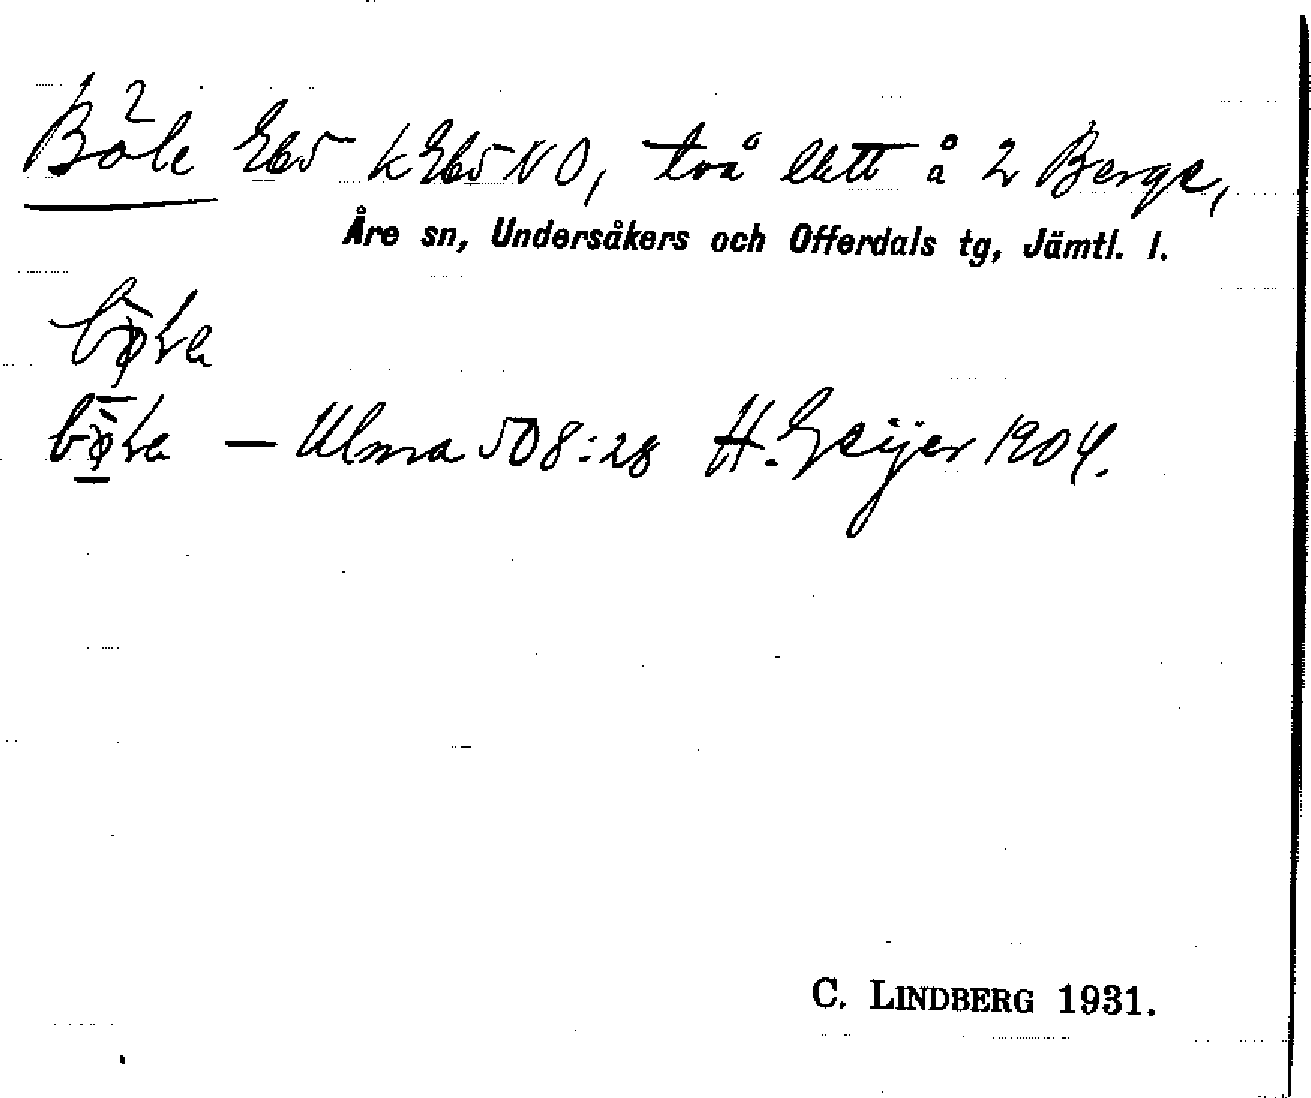 Böle Eb5 kEb5NO, två lht å 2 Berge,
Åre sn, Undersåkers och Offerdals tg, Jämtl. l.
— Ulma 508:28 H. Geijer 1904.
C. LINDBERG 1931.